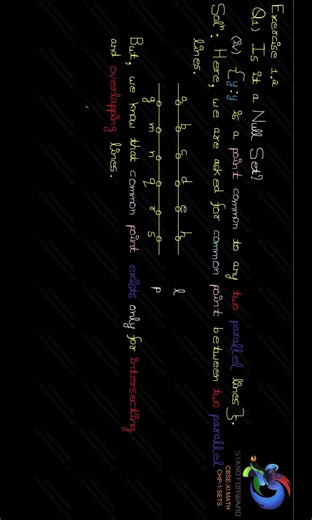 STAND FORWARD
CBSE-XI MATH
CHP-1 SETS
Exercise 1.2
Q1) Is it a Null Set?
(iv) {y:y is a point common to any two parallel lines}.
Solⁿ: Here, we are asked for common point between two parallel
lines.
a b c d e h l
g m n q r s p
But, we know that common point exists only for intersecting
and overlapping lines.